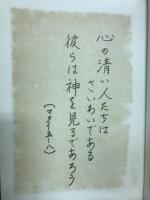 心の清い人たちは
さいわいである
彼らは神を見るであろう
（マタイ五-八）